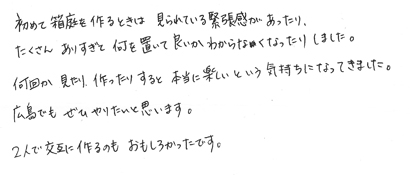 初めて箱庭を作るときは 見られている緊張感があったり、
たくさん ありすぎて 何を置いて良いか わからなくなったり しました。
何回か 見たり、作ったりすると 本当に楽しい という 気持ちになってきました。
広島でも ぜひ やりたいと思います。
2人で交互に作るのも おもしろかったです。